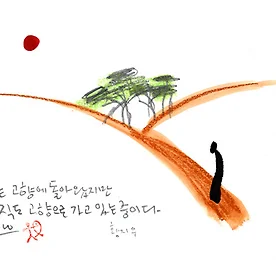 도 고향에 돌아왔지만
직도 고향으로 가고 있는 중이다.
황지우